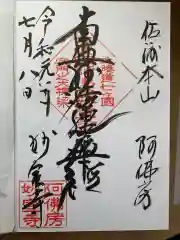 佐渡本山
阿佛房
南無妙法蓮華経
妙宣寺
令和元年
七月八日
阿佛房
妙宣寺